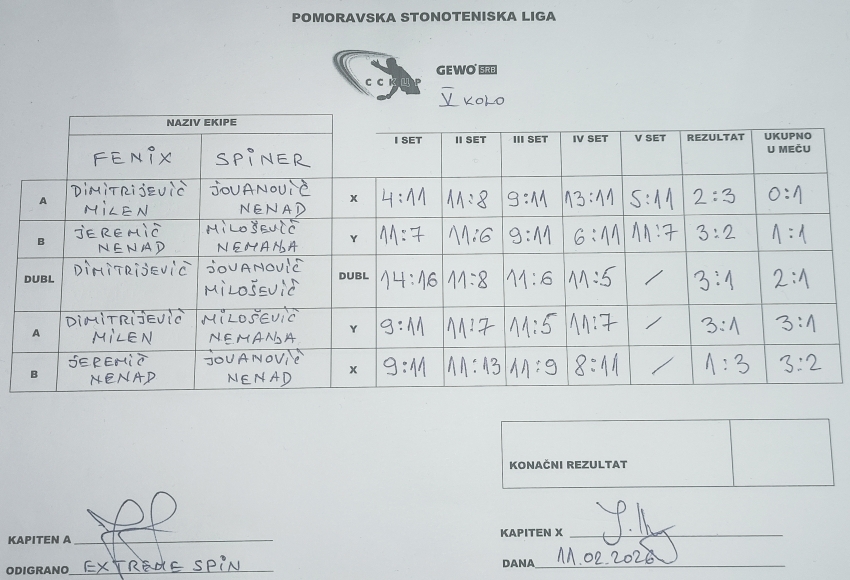 POMORAVSKA STONOTENISKA LIGA
CCKUP
GEWO SRB
V KOLO
NAZIV EKIPE I SET II SET III SET IV SET V SET REZULTAT UKUPNO U MEČU
FENIX SPINER
A DIMITRIJEVIĆ MILEN JOVANOVIĆ NENAD X 4:11 11:8 9:11 13:11 5:11 2:3 0:1
B JEREMIĆ NENAD MILOŠEVIĆ NEMANJA Y 11:7 11:6 9:11 6:11 11:7 3:2 1:1
DUBL DIMITRIJEVIĆ JOVANOVIĆ MILOŠEVIĆ DUBL 14:16 11:8 11:6 11:5 / 3:1 2:1
A DIMITRIJEVIĆ MILEN MILOŠEVIĆ NEMANJA Y 9:11 11:7 11:5 11:7 / 3:1 3:1
B JEREMIĆ NENAD JOVANOVIĆ NENAD X 9:11 11:13 11:9 8:11 / 1:3 3:2
KONAČNI REZULTAT
KAPITEN A
KAPITEN X
ODIGRANO EXTREME SPIN
DANA 11.02.2026